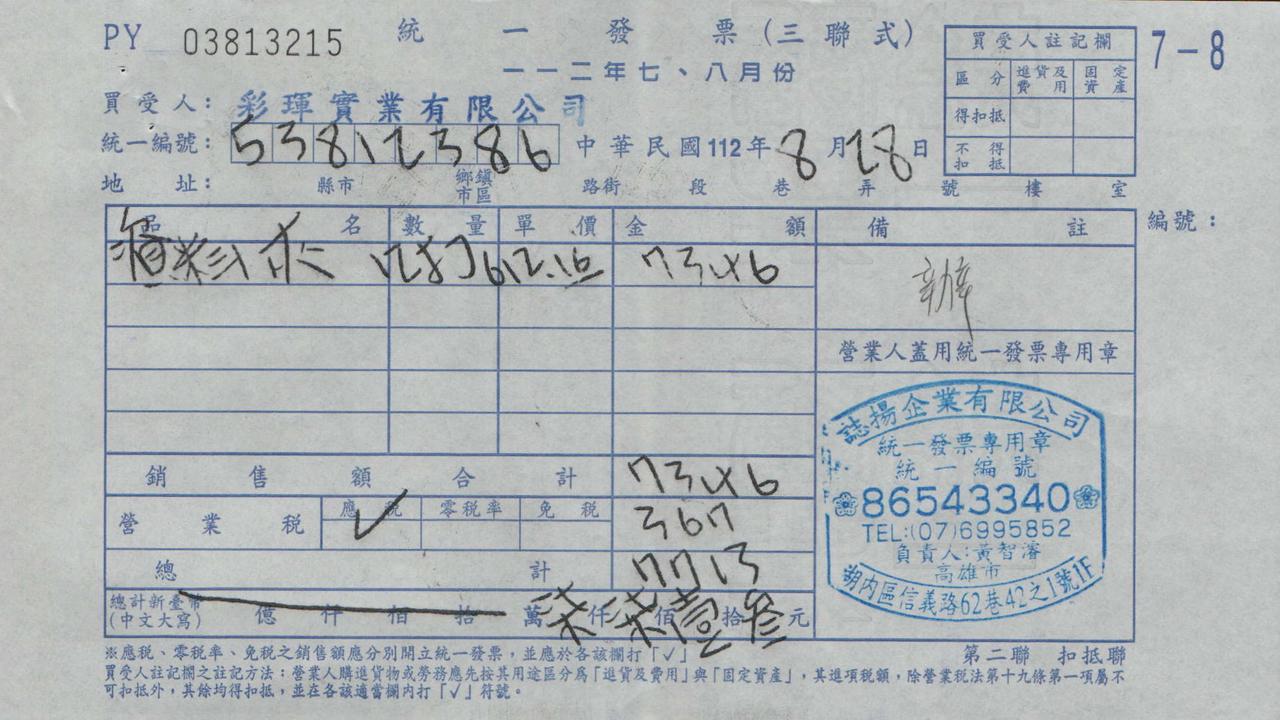 PY 03813215 統一發票(三聯式) 7-8
一一二年七、八月份
買受人: 彩琿實業有限公司
統一編號: 53812386 中華民國112年8月28日
地址: 縣市 鄉鎮市區 路街 段 巷 弄 號 樓 室
買受人註記欄
區分 進貨及費用 固定資產
得扣抵
不得扣抵
品名 數量 單價 金額 備註 編號:
12打 612.16 7346
營業人蓋用統一發票專用章
銷售額合計 7346
營業稅 應稅 ✓ 零稅率 免稅 367
總計 7713
總計新臺幣(中文大寫) 億 仟 佰 拾 萬 柒仟柒佰壹拾參元
誌揚企業有限公司
統一發票專用章
統一編號
86543340
TEL:(07)6995852
負責人:黃智濬
高雄市
湖內區信義路62巷42之1號1F
※應稅、零稅率、免稅之銷售額應分別開立統一發票,並應於各該欄打「✓」 第二聯 扣抵聯
買受人註記欄之註記方法:營業人購進貨物或勞務應先按其用途區分為「進貨及費用」與「固定資產」,其進項稅額,除營業稅法第十九條第一項屬不
可扣抵外,其餘均得扣抵,並在各該適當欄內打「✓」符號。